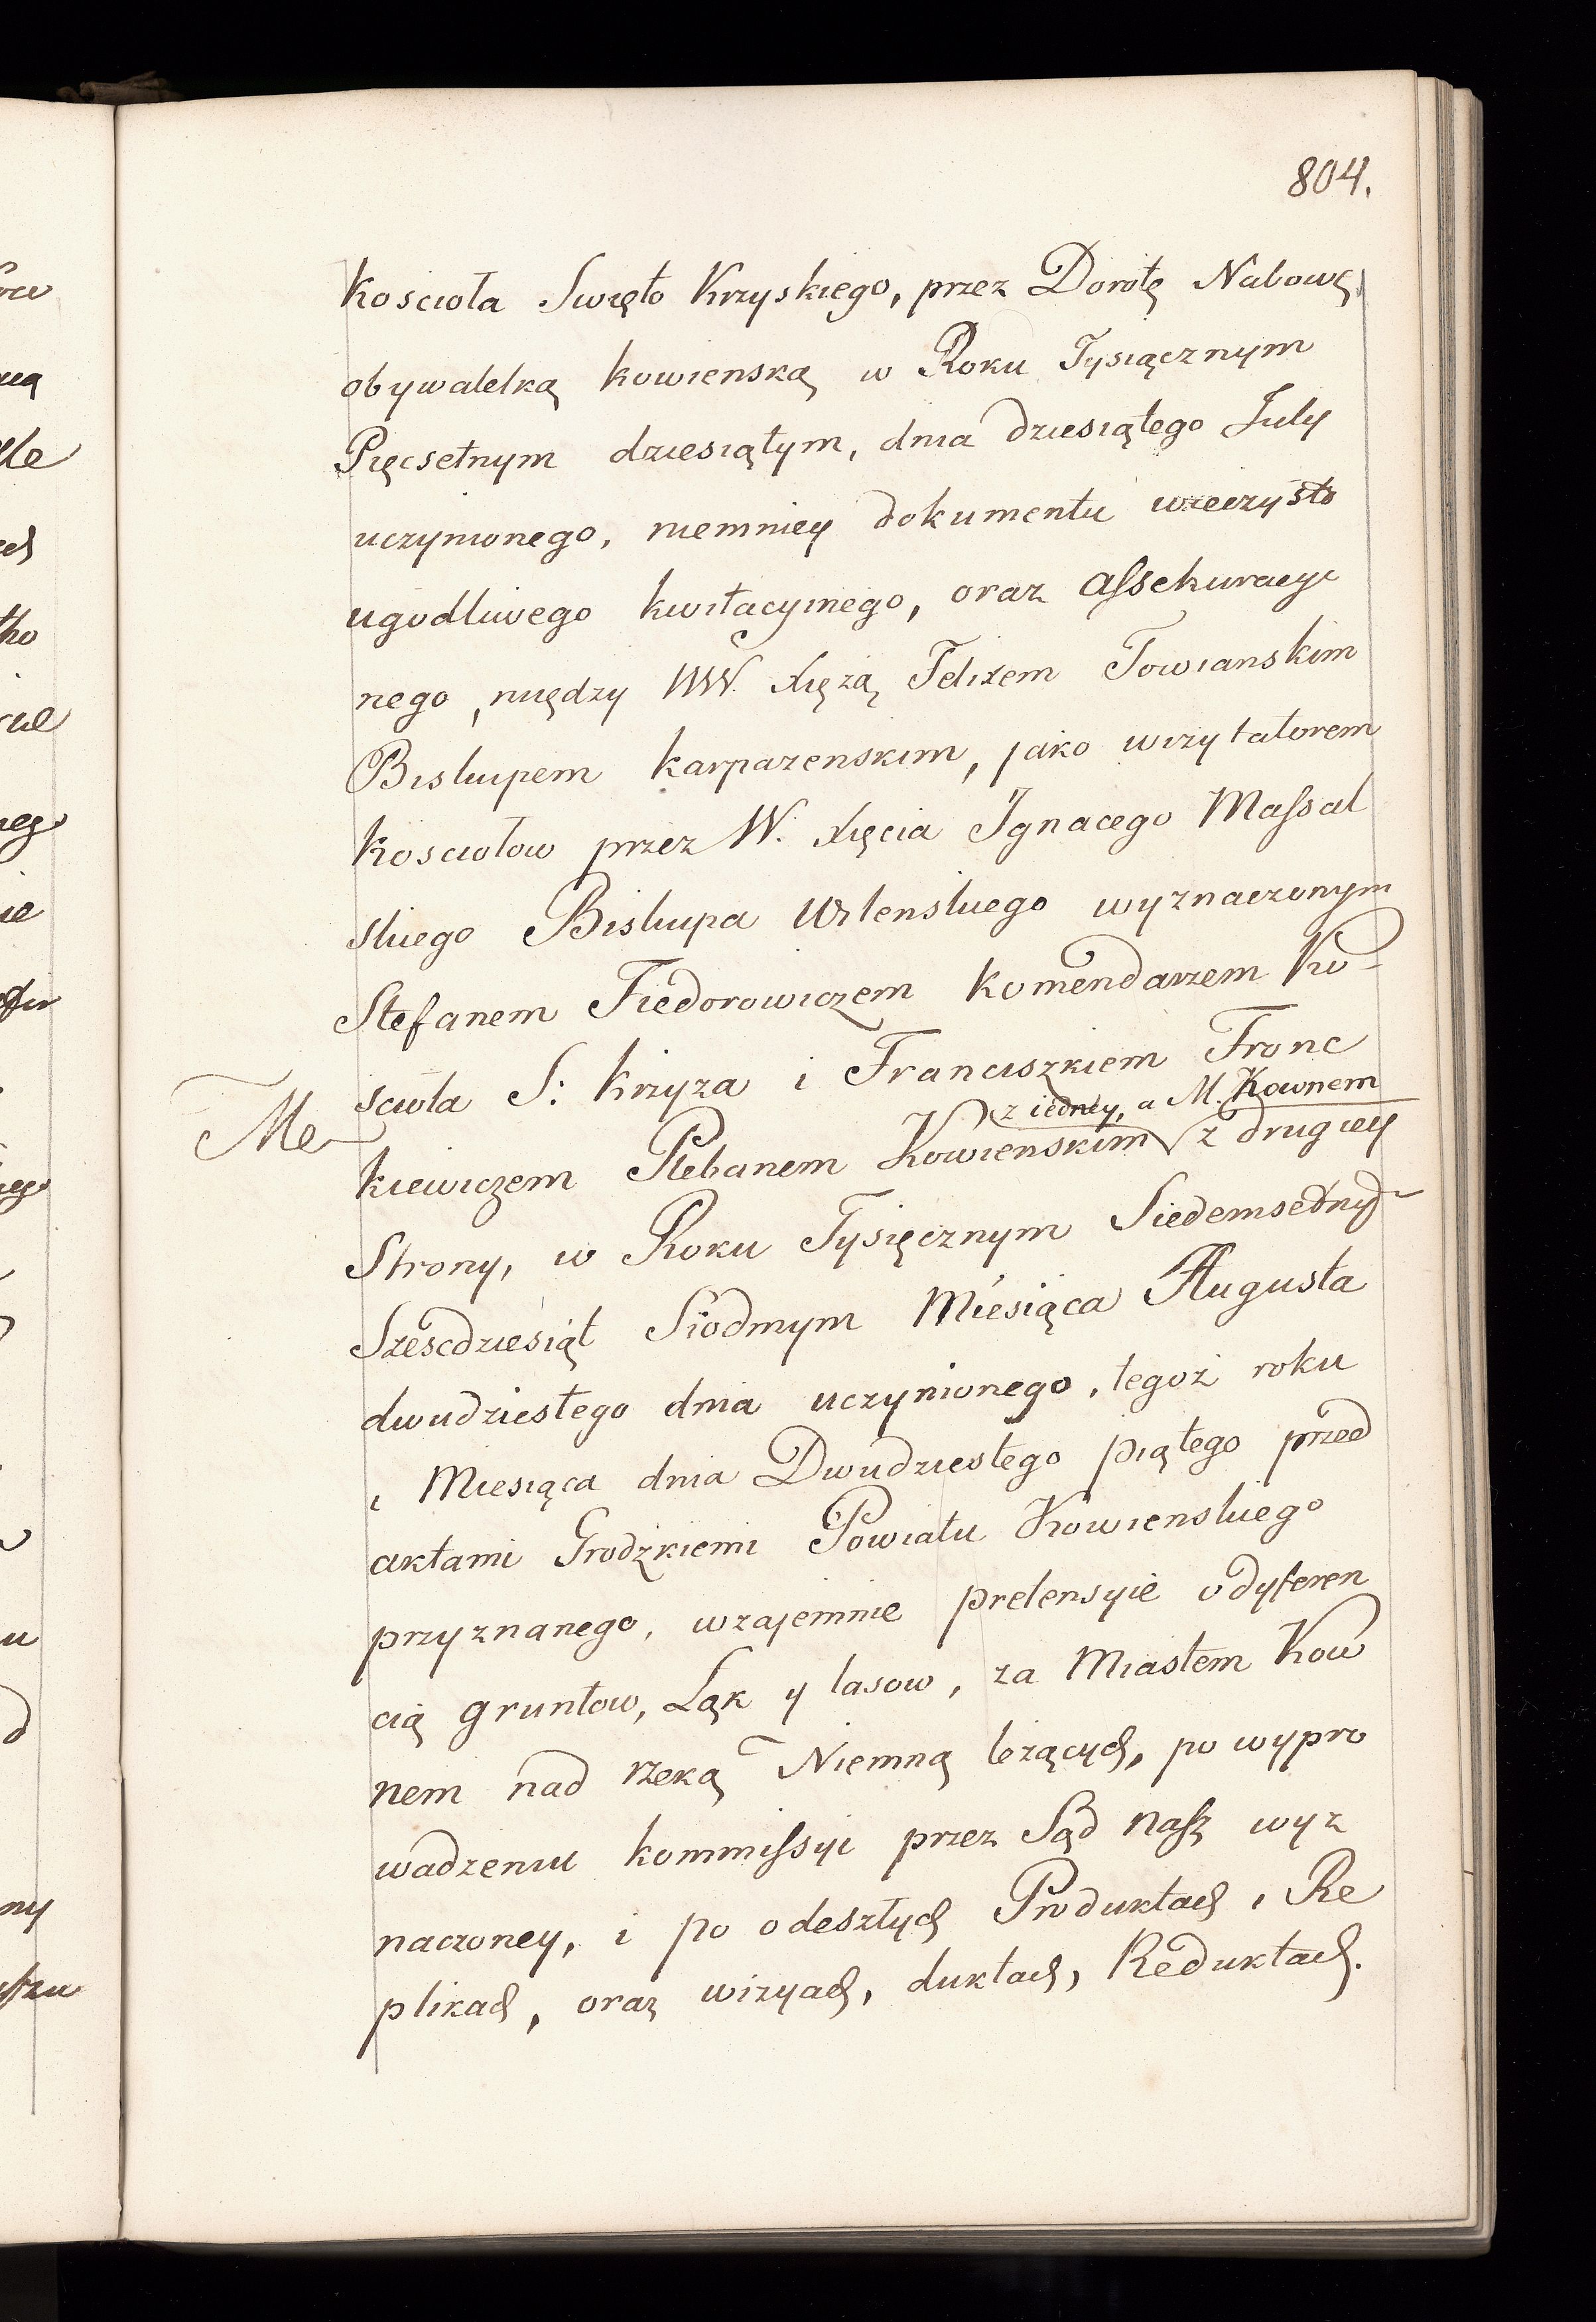 804.
Koscioła Swięto Krzyskiego, przez Dorotę Nabowę,
obywatelką kowienską w Roku Tysiącznym
Pięcsetnym dziesiątym, dnia dziesiątego July
uczynionego, niemniey dokumentu wieczysto
ugodliwego kwitacyinego, oraz assekuracyi
nego, między WW. Xiężą Felixem Towianskim
Biskupem karpazenskim, jako wizytatorem
kosciołow przez W. Xięcia Ignacego Massal
skiego Biskupa Wilenskiego wyznaczonym
Stefanem Fiedorowiczem Komendarzem Ko-
scioła S: Krzyza i Franciszkiem Fronc
z iedney, a M. Kownem
Me kiewiczem Plebanem Kowienskim z drugiey
Strony, w Roku Tysięcznym Siedemsetnym
Szescdziesiąt Siodmym Miesiąca Augusta
dwudziestego dnia uczynionego, tegoż roku
i Miesiąca dnia Dwudziestego piątego przed
aktami Grodzkiemi Powiatu Kowienskiego
przyznanego, wzajemnie pretensyie o dyferen
cią gruntow, Łąk y lasow, za Miastem Kow
nem nad rzeką Niemną leżących, po wypro
wadzeniu kommissyi przez Sąd nasz wyz
naczoney, i po odeszłych Produktach, Re
plikach, oraz wizyach, duktach, Reduktach.